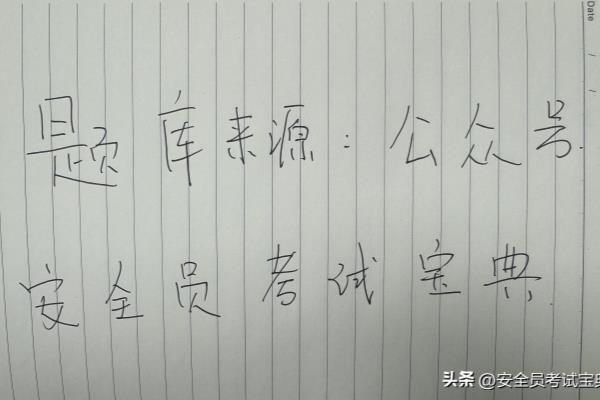 Date
题库来源：公众号.
安全员考试宝典.
头条 @安全员考试宝典